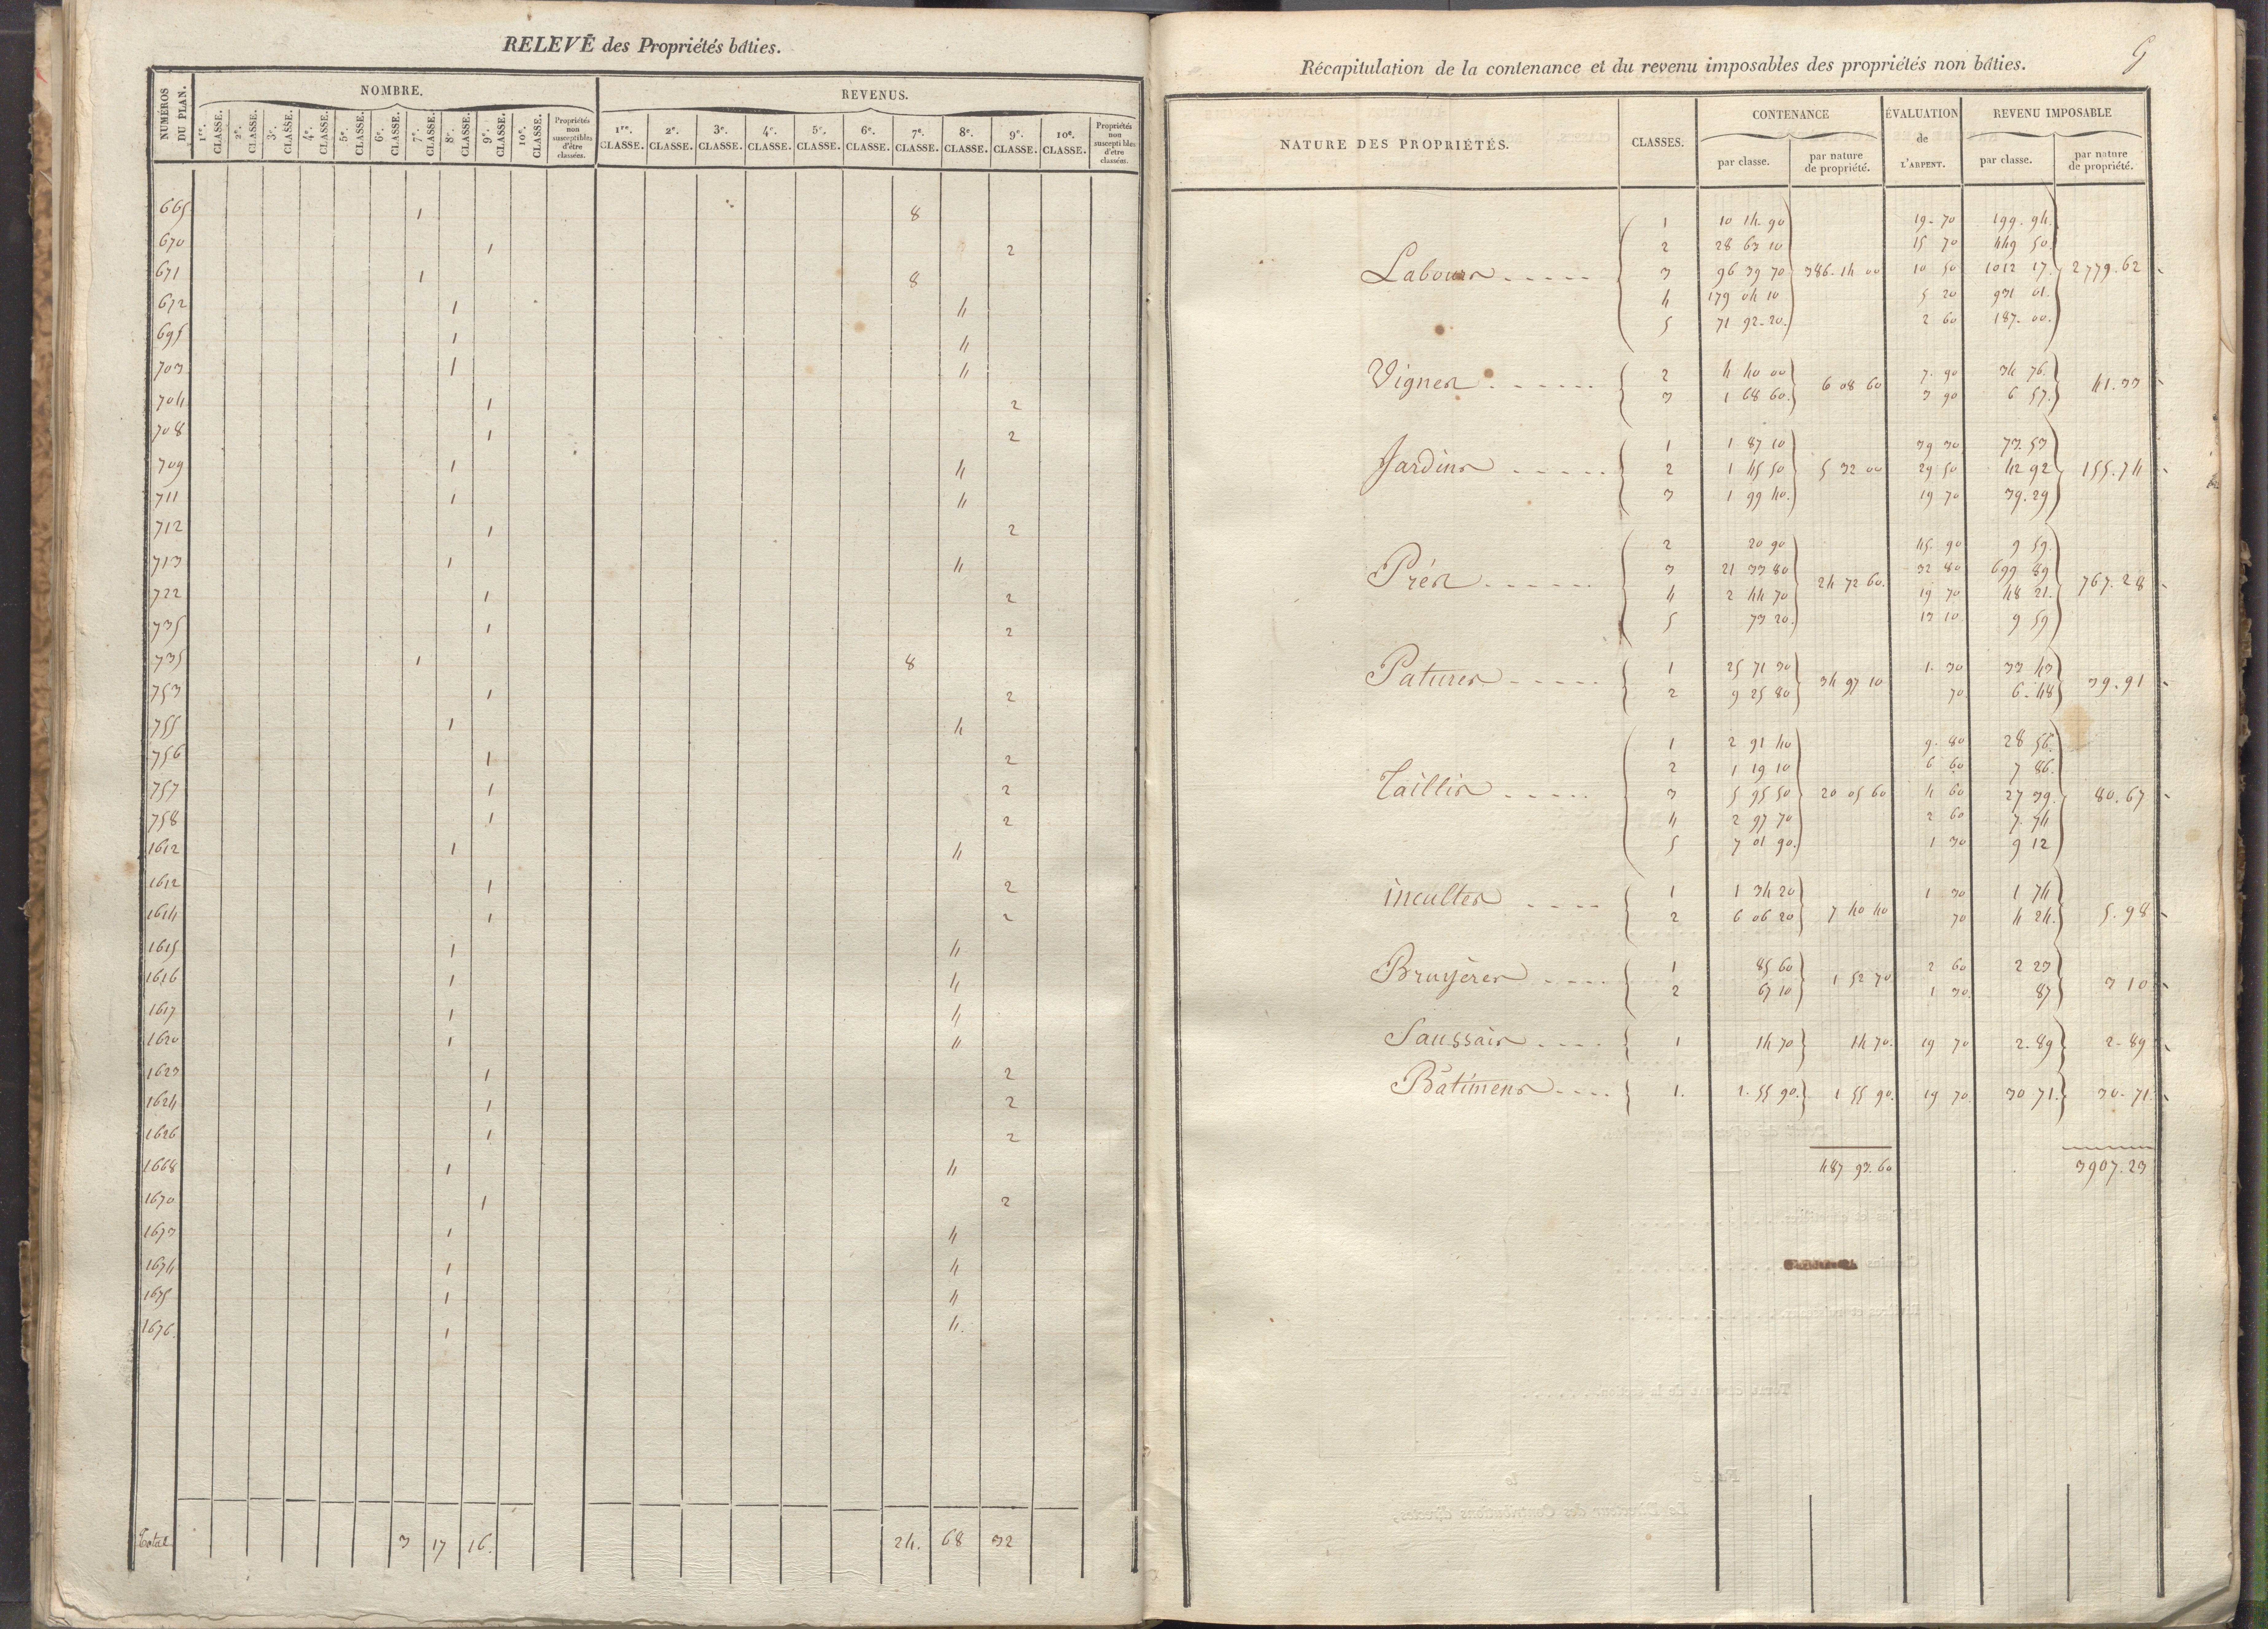 RELEVÉ des Propriétés bâties.
NUMÉROS DU PLAN. NOMBRE. REVENUS.
1re. CLASSE. 2e. CLASSE. 3e. CLASSE. 4e. CLASSE. 5e. CLASSE. 6e. CLASSE. 7e. CLASSE. 8e. CLASSE. 9e. CLASSE. 10e. CLASSE. Propriétés non susceptibles d'être classées. 1re. CLASSE. 2e. CLASSE. 3e. CLASSE. 4e. CLASSE. 5e. CLASSE. 6e. CLASSE. 7e. CLASSE. 8e. CLASSE. 9e. CLASSE. 10e. CLASSE. Propriétés non susceptibles d'être classées.
665 1 8
670 1 2
671 1 8
672 1 4
695 1 4
703 1 4
704 1 2
708 1 2
709 1 4
711 1 4
712 1 2
713 1 4
722 1 2
735 1 2
735 1 8
753 1 2
755 1 4
756 1 2
757 1 2
758 1 2
1612 1 4
1612 1 2
1614 1 2
1615 1 4
1616 1 4
1617 1 4
1620 1 4
1623 1 2
1624 1 2
1626 1 2
1668 1 4
1670 1 2
1673 1 4
1674 1 4
1675 1 4
1676. 1 4.
Total 3 17 16. 24. 68 32
Récapitulation de la contenance et du revenu imposables des propriétés non bâties.
NATURE DES PROPRIÉTÉS. CLASSES. CONTENANCE ÉVALUATION de L'ARPENT. REVENU IMPOSABLE
par classe. par nature de propriété. par classe. par nature de propriété.
1 10 14 90 19-70 199.94
2 28 63 10 15 70 449 50
Labours 3 96 39 70 386.14 00 10 50 1012 17. 2779.62
4 179 04 10 5 20 931 01.
5 71 92-20. 2 60 187.00.
Vignes 2 4 40 00 6 08 60 7.90 34 76. 41.33
3 1 68 60. 3 90 6 57.
1 1 87 10 39 30 73.53
Jardins 2 1 45 50 5 32 00 29 50 42 92 155.74
3 1 99 40. 19 70 39.29
2 20 90 45.90 9 59.
Prés 3 21 33 80 24 72 60. 32 80 699 89 767.28
4 2 44 70 19 70 48 21.
5 73 20. 13 10 9 59
Patures 1 25 71 30 34 97 10 1.30 33 43 39.91
2 9 25 80 70 6.48
1 2 91 40 9.80 28 56.
2 1 19 10 6 60 7 86.
Taillis 3 5 95 50 20 05 60 4 60 27 39. 80.67
4 2 97 70 2 60 7.74
5 7 01 90. 1 30 9 12
incultes 1 1 34 20 7 40 40 1 30 1 74 5.98
2 6 06 20 70 4 24.
Bruyères 1 85 60 1 52 70 2 60 2 23 3 10
2 67 10 1 30. 87
Saussais 1 14 70 14 70. 19 70 2-89 2-89
Bâtimens 1. 1.55 90. 1 55 90. 19 70. 30 71. 30-71.
487 93.60 3907.23